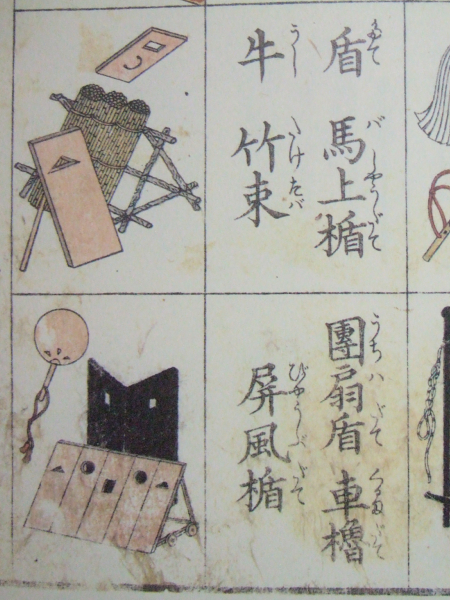 盾 馬上楯
たて ばしやうだて
牛 竹束
うし たけたば
團扇盾 車櫓
うちハだて くるまだて
屏風楯
びやうぶだて